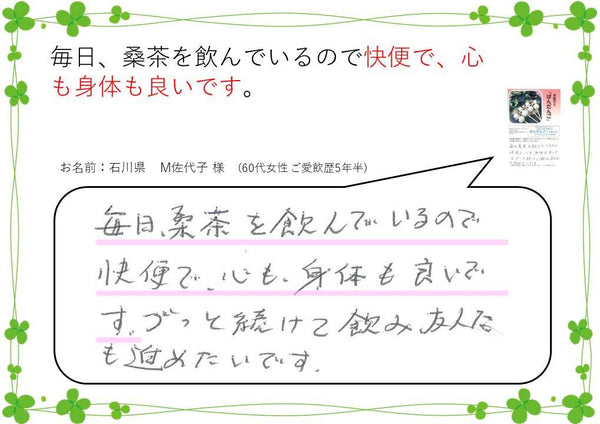 毎日、桑茶を飲んでいるので快便で、心
も身体も良いです。
お名前：石川県　M佐代子 様　(60代女性 ご愛飲歴5年半)
毎日、桑茶を飲んでいるので
快便で、心も、身体も良いで
す。ずっと続けて飲み、友人な
も進めたいです。